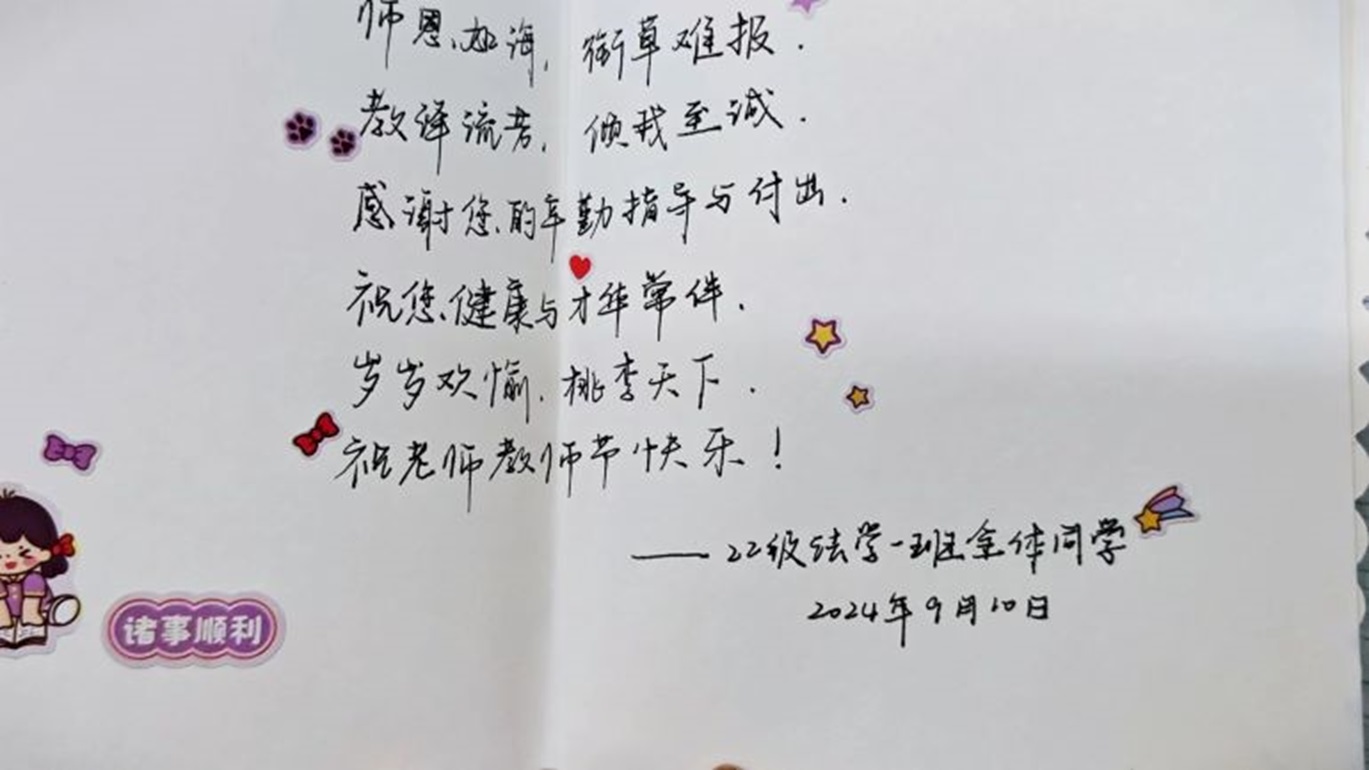 师恩如海，衔草难报.
教泽流芳，倾我至诚.
感谢您的辛勤指导与付出.
祝您健康与才华常伴.
岁岁欢愉.桃李天下.
祝老师教师节快乐!
——22级法学一班全体同学
2024年9月10日
诸事顺利